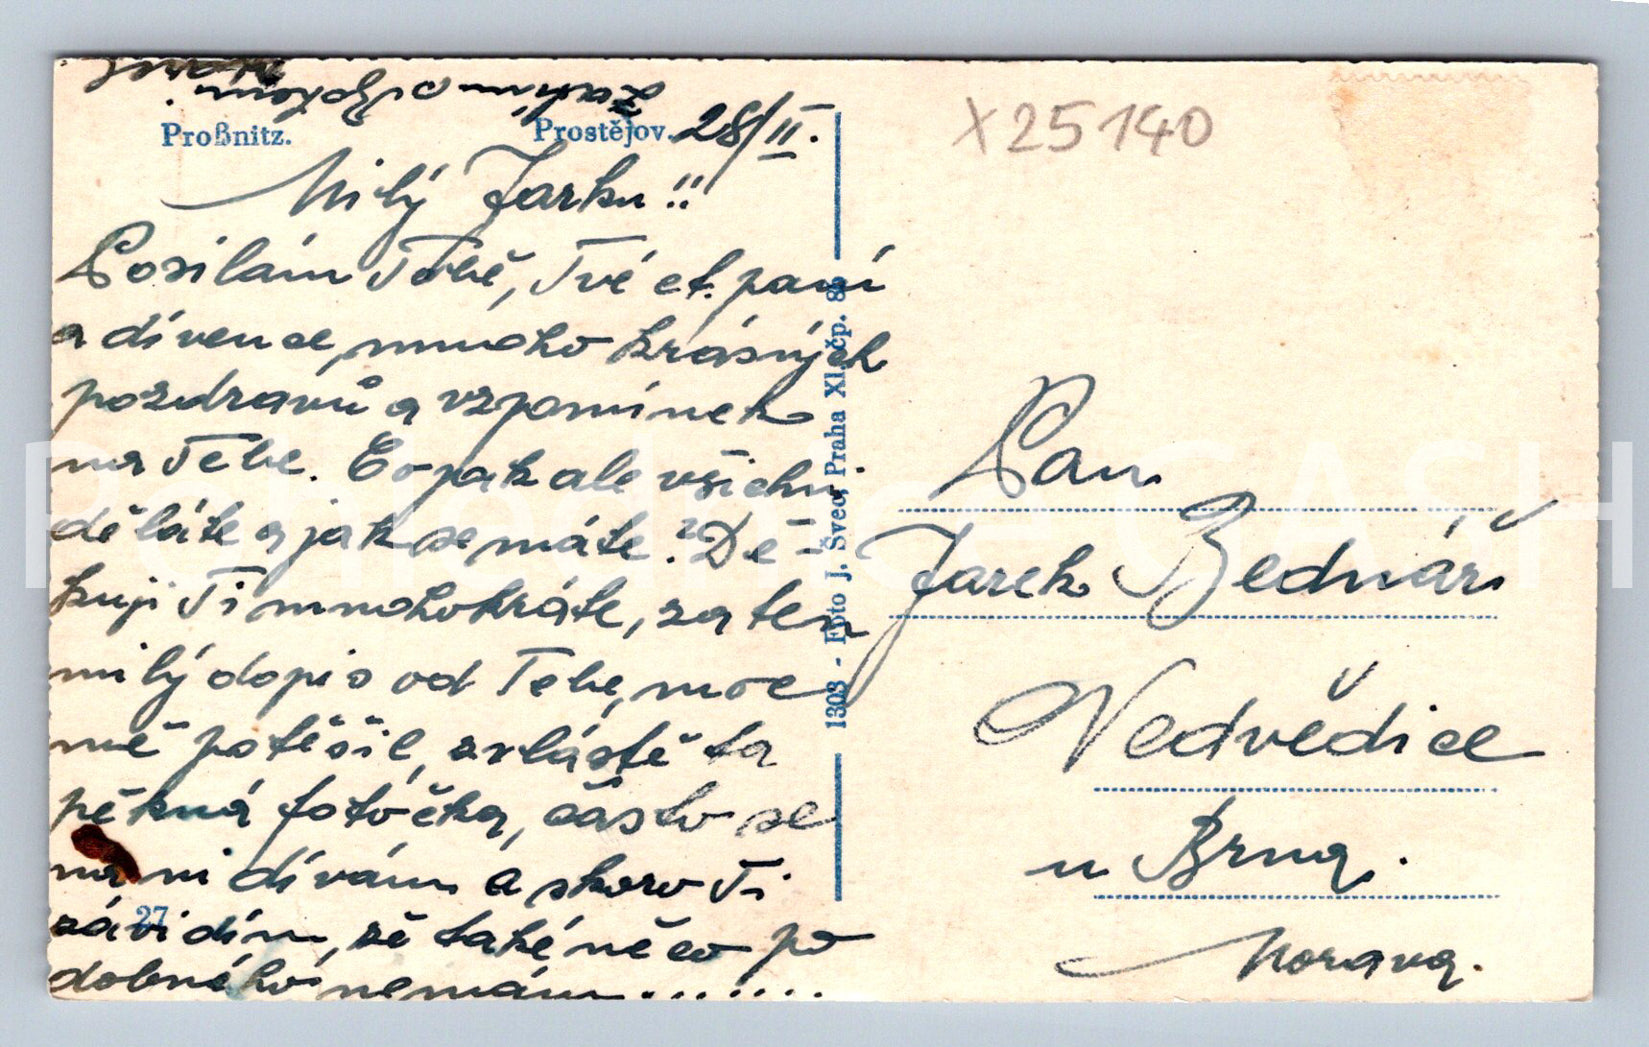 Proßnitz. Prostějov. 28/II.
Milý Jarku!!
Posílám Tobě, Tvé ct. paní
a dívence, mnoho krásných
pozdravů a vzpomínek
na Tebe. Copak ale všichni
děláte a jak se máte? Dě-
kuji Ti mnohokráte, za ten
milý dopis od Tebe, moc
mě potěšil, zvláště ta
pěkná fotočka, často se
na ni dívám a skoro Ti
závidím, že také něco po
dobného nemám........
27
1303 - Foto J. Švec, Praha XI. čp. 8
X25140
Pan
Jarek Bednář
Nedvědice
u Brna.
Morava.